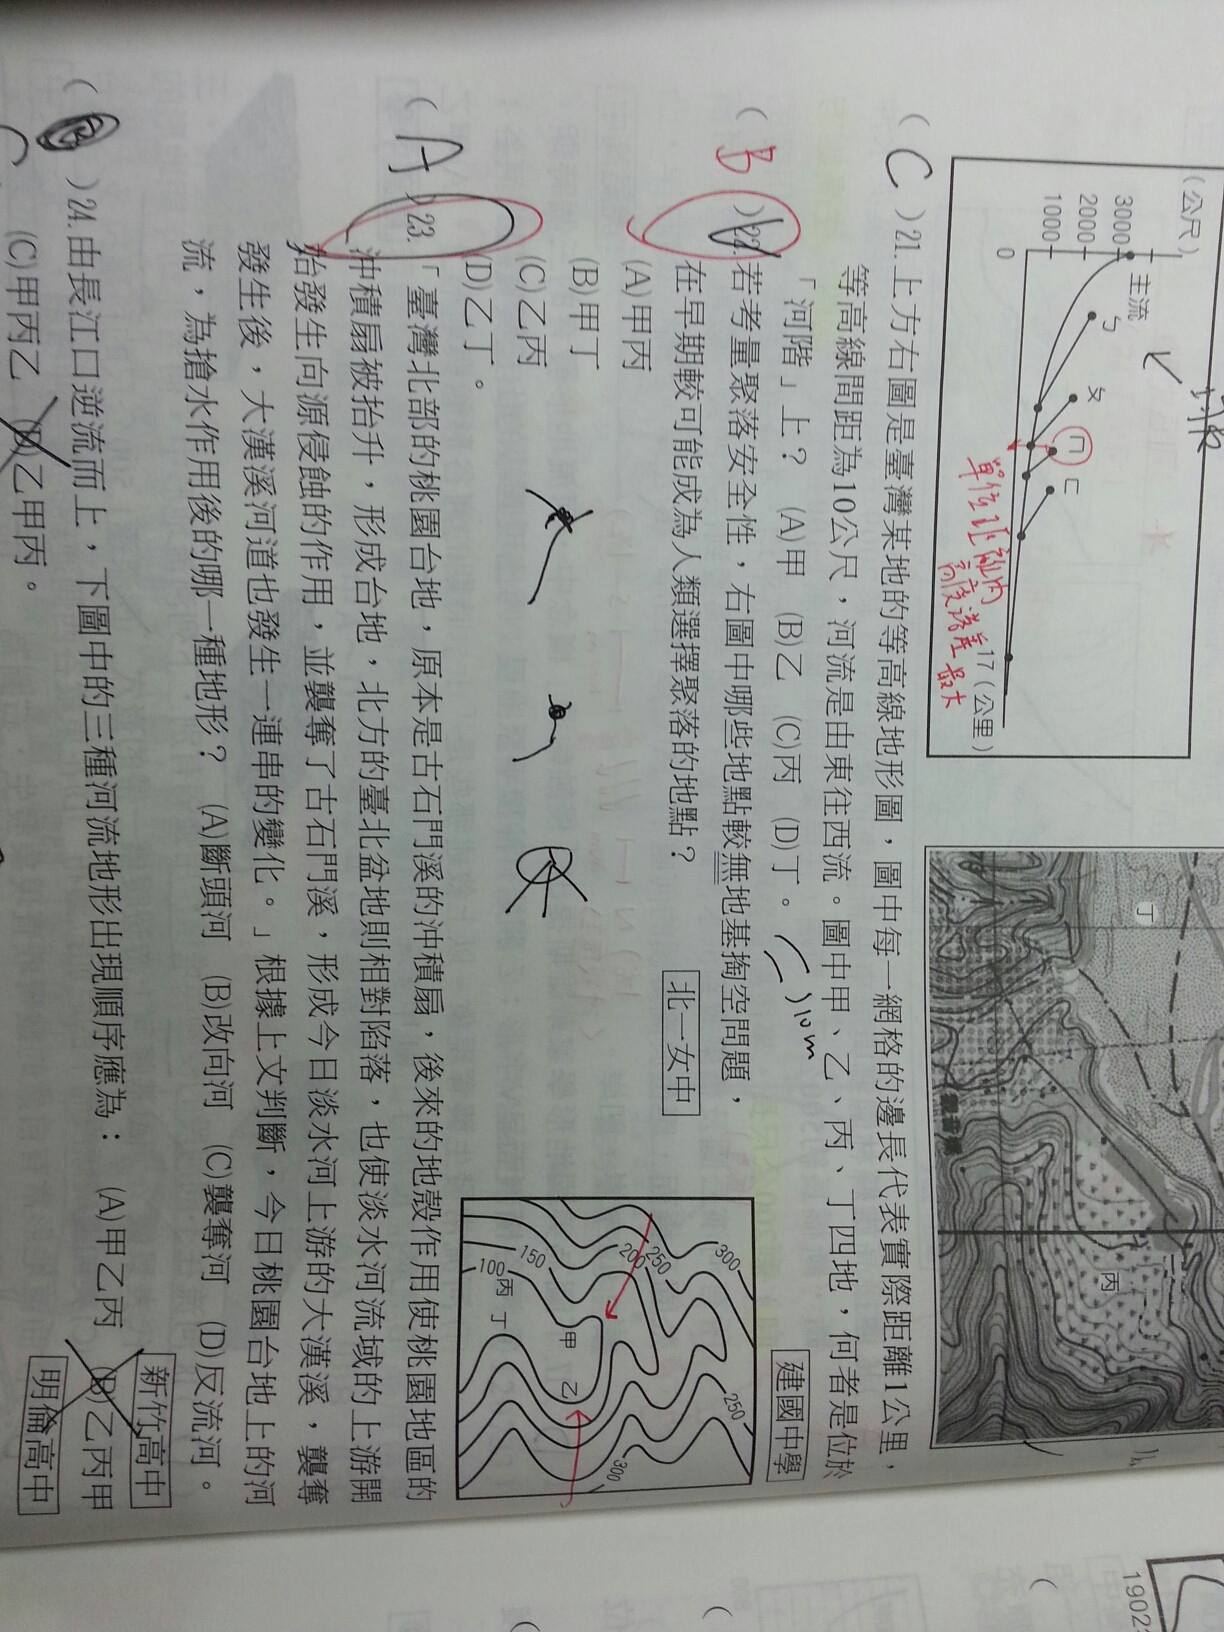 (公尺)
3000
2000
1000
0
主流
ㄅ
ㄆ
ㄇ
ㄈ
17(公里)
單位距離內
高度落差最大
丁
丙
( C )21.上方右圖是臺灣某地的等高線地形圖，圖中每一網格的邊長代表實際距離1公里，
等高線間距為10公尺，河流是由東往西流。圖中甲、乙、丙、丁四地，何者是位於
「河階」上？ (A)甲 (B)乙 (C)丙 (D)丁。
10m
建國中學
( B )22.若考量聚落安全性，右圖中哪些地點較無地基掏空問題，
在早期較可能成為人類選擇聚落的地點？
北一女中
(A)甲丙
(B)甲丁
(C)乙丙
(D)乙丁。
300
250
200
150
100
丙
丁
甲
乙
250
300
( A )23.「臺灣北部的桃園台地，原本是古石門溪的沖積扇，後來的地殼作用使桃園地區的
沖積扇被抬升，形成台地，北方的臺北盆地則相對陷落，也使淡水河流域的上游開
始發生向源侵蝕的作用，並襲奪了古石門溪，形成今日淡水河上游的大漢溪，襲奪
發生後，大漢溪河道也發生一連串的變化。」根據上文判斷，今日桃園台地上的河
流，為搶水作用後的哪一種地形？ (A)斷頭河 (B)改向河 (C)襲奪河 (D)反流河。
新竹高中
( )24.由長江口逆流而上，下圖中的三種河流地形出現順序應為： (A)甲乙丙 (B)乙丙甲
C
(C)甲丙乙 (D)乙甲丙。
明倫高中